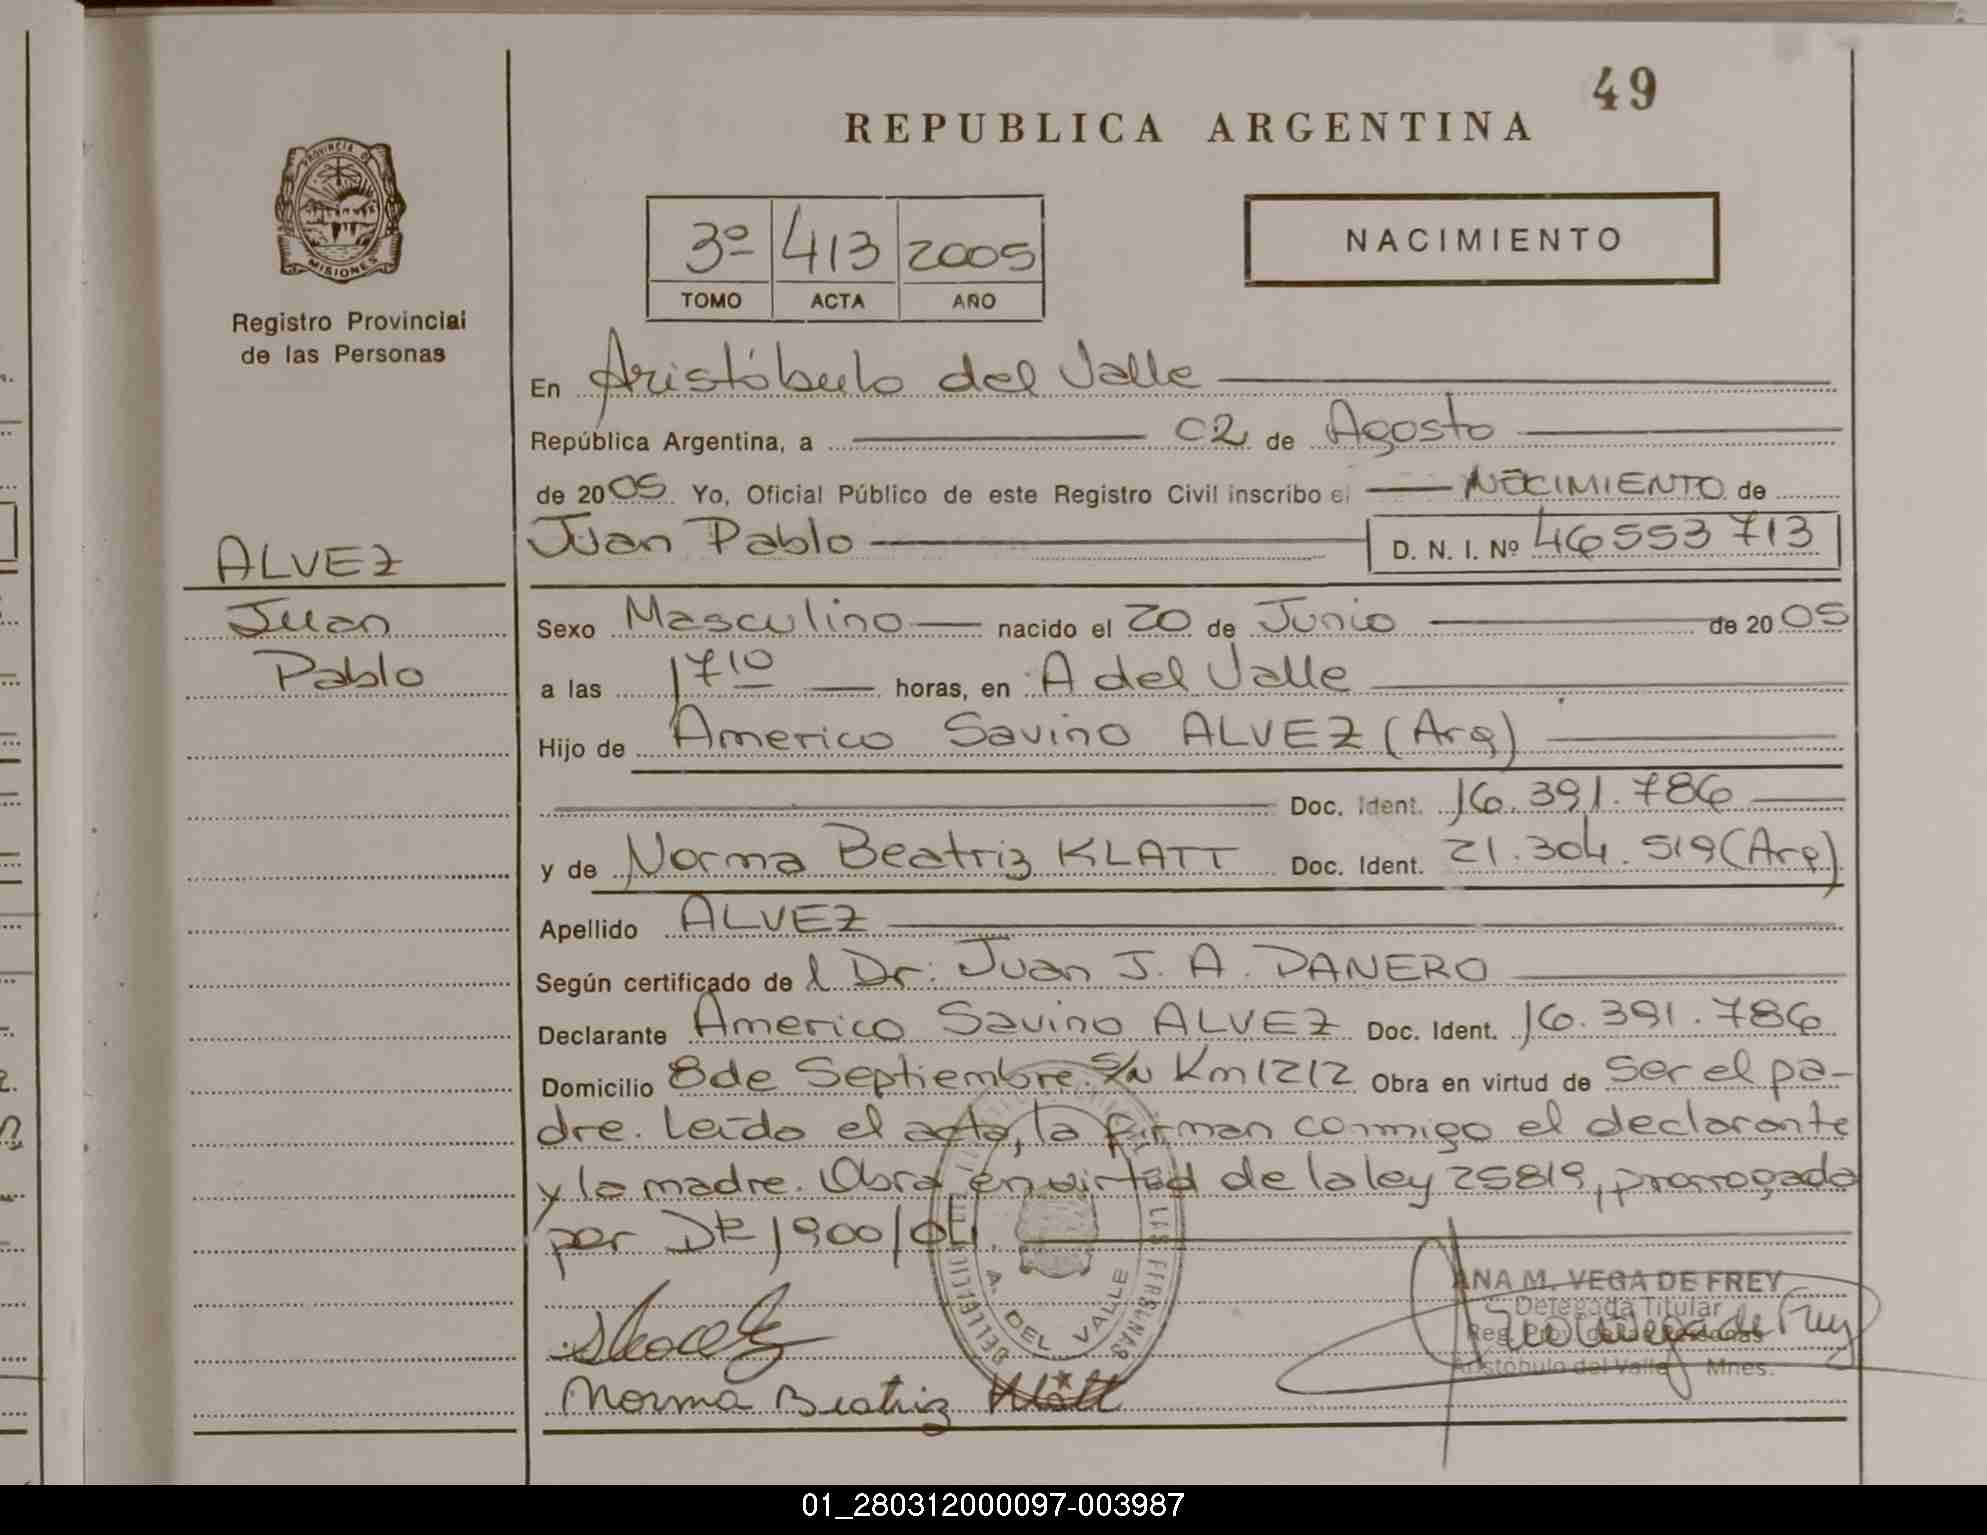 49
REPUBLICA ARGENTINA
PROVINCIA DE
MISIONES
Registro Provincial
de las Personas
3º 413 2005
TOMO ACTA AÑO
NACIMIENTO
En Aristóbulo del Valle
República Argentina, a 02 de Agosto
de 2005 Yo, Oficial Público de este Registro Civil inscribo el NACIMIENTO de
Juan Pablo D. N. I. Nº 46553713
ALVEZ
Juan
Pablo
Sexo Masculino nacido el 20 de Junio de 2005
a las 1710 horas, en A del Valle
Hijo de Americo Savino ALVEZ (Arg)
Doc. Ident. 16.391.786
y de Norma Beatriz KLATT Doc. Ident. 21.304.519 (Arg.)
Apellido ALVEZ
Según certificado de l Dr: Juan J. A. DANERO
Declarante Americo Savino ALVEZ Doc. Ident. 16.391.786
Domicilio 8 de Septiembre S/N Km 1212 Obra en virtud de ser el pa-
dre. Leído el acta, la firman conmigo el declarante
y la madre. Obra en virtud de la ley 25819, prorrogada
por DR 1900/04.
A. DEL VALLE
ANA M. VEGA DE FREY
Delegada Titular
Reg. Prov. de las Personas
Aristóbulo del Valle Mnes.
Norma Beatriz Klatt
01_280312000097-003987